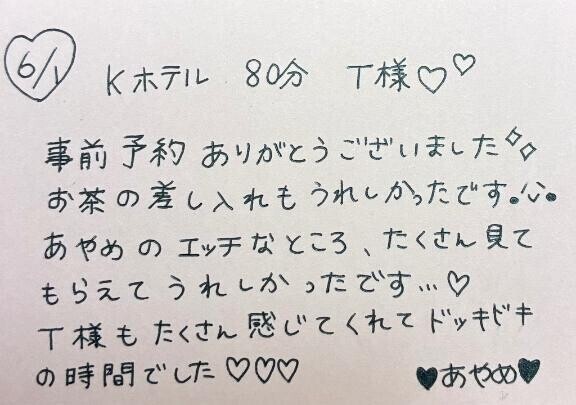 6/1 Kホテル 80分 T様♡♡
事前予約ありがとうございました✧✧
お茶の差し入れもうれしかったです。
あやめのエッチなところ、たくさん見て
もらえてうれしかったです…♡
T様もたくさん感じてくれてドッキドキ
の時間でした♡♡♡ ♥あやめ♥